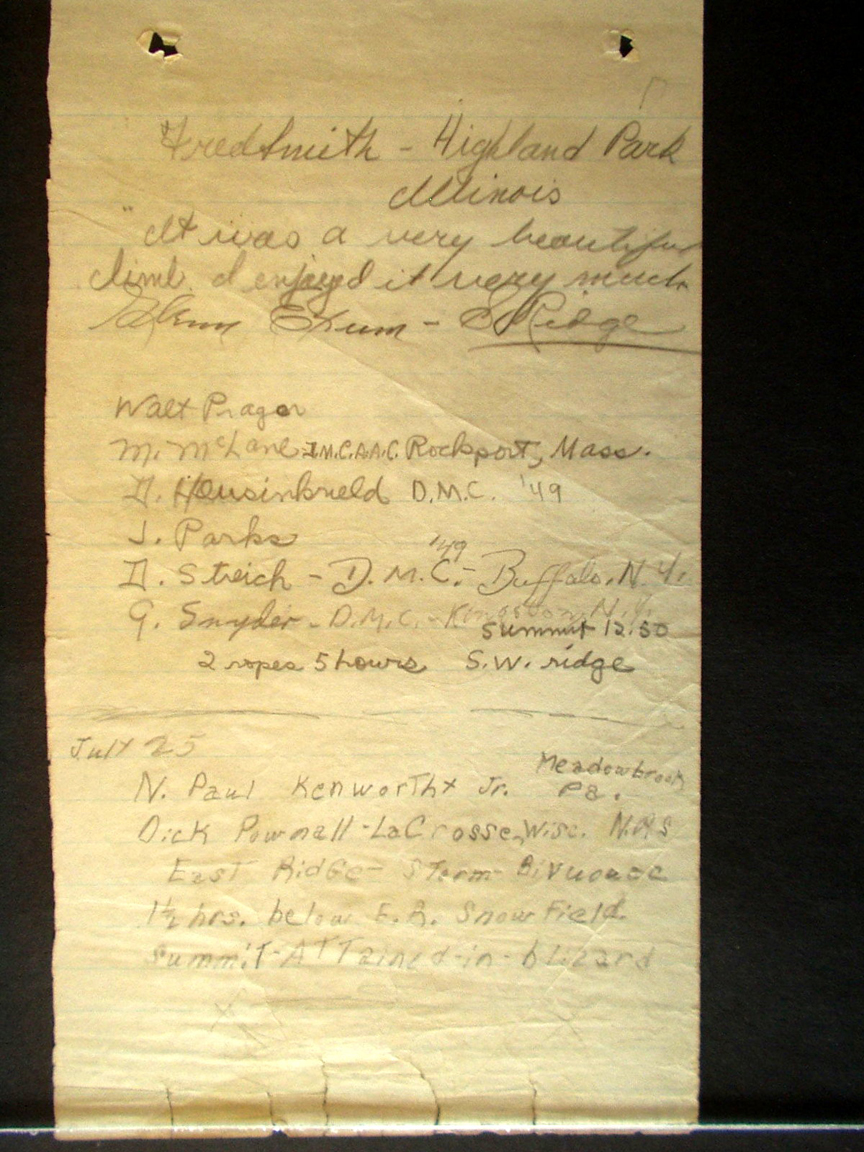 Fred Smith - Highland Park
Illinois
"It was a very beautiful
climb. I enjoyed it very much
Glenn Exum - S Ridge
Walt Prager
M. McLane I.M.C.A.A.C. Rockport, Mass.
D. D.M.C. '49
J. Parks
D. Streich - D.M.C. '49 - Buffalo, N.Y.
G. Snyder - D.M.C. - Kingston N.J.
Summit 12:50
2 ropes 5 hours S.W. ridge
July 25
N. Paul Kenworthy Jr. Meadowbrook
Pa.
Dick Pownall - LaCrosse, Wisc. N.P.S
East Ridge - Storm - Bivuoace
1½ hrs. below E.R. Snow Field.
Summit - ATTained - in - blizard